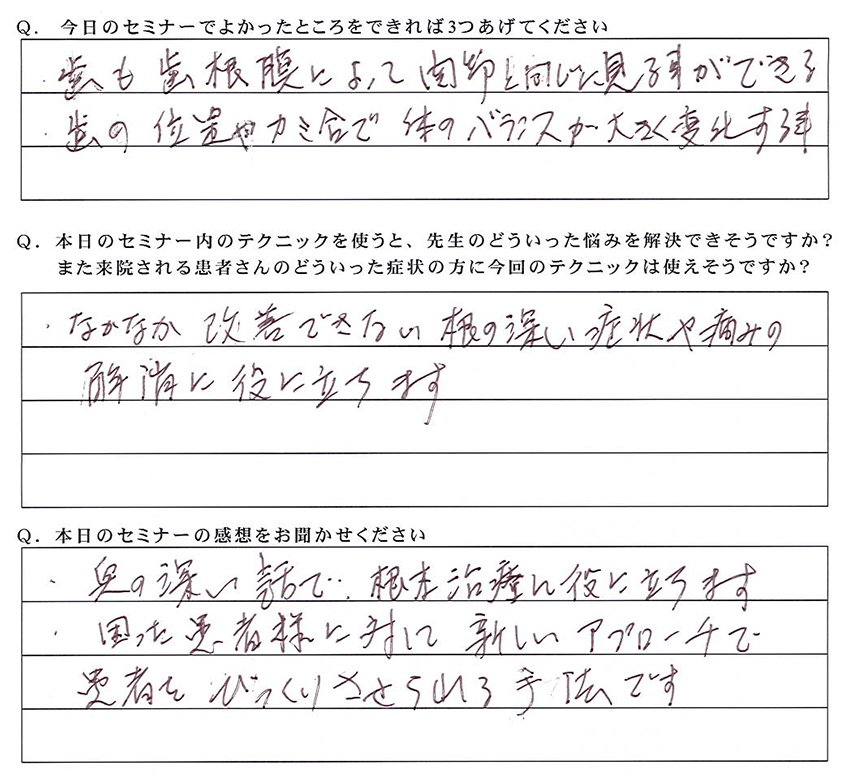 Q. 今日のセミナーでよかったところをできれば3つあげてください
・歯も歯根膜によって関節と同じに見る事ができる
・歯の位置やカミ合で体のバランスが大きく変化する事
Q. 本日のセミナー内のテクニックを使うと、先生のどういった悩みを解決できそうですか?
また来院される患者さんのどういった症状の方に今回のテクニックは使えそうですか?
・なかなか改善できない根の深い症状や痛みの
解消に役に立ちます
Q. 本日のセミナーの感想をお聞かせください
・奥の深い話で、根本治療に役に立ちます
・困った患者様に対して新しいアプローチで
患者をびっくりさせられる手法です